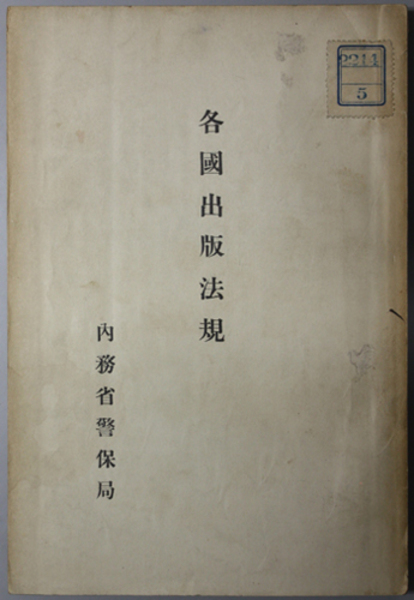 各國出版法規
內務省警保局
2214
5